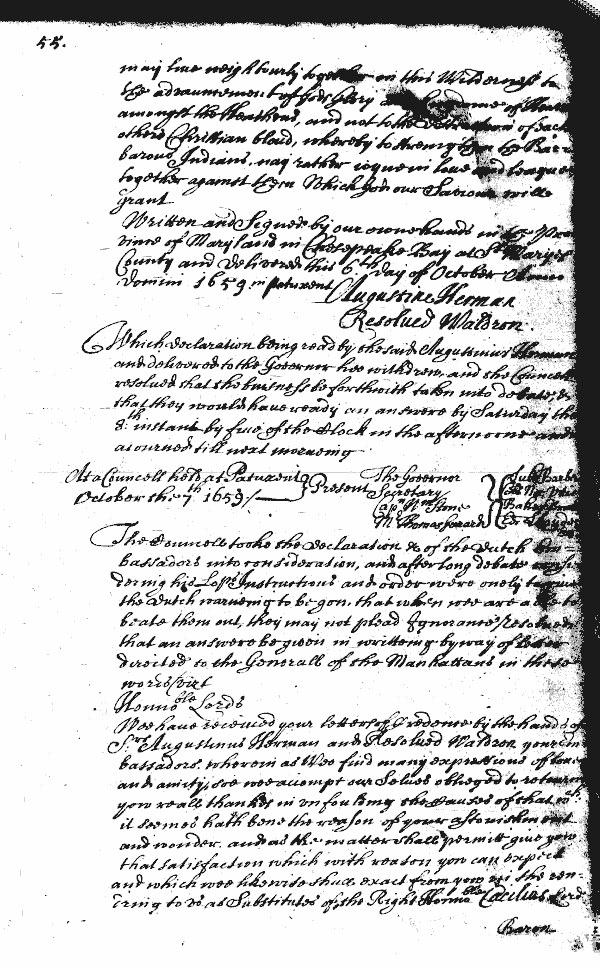 55.
may live neighbourly together in this Wildernesse to
the advauncement of gods Glory and of
amongst the Heathens, and not to the of each
others Christian bloud, whereby to strengthen the Bar
barous Indians, nay rather ioyne in love and league
together against them Which God our Saviour will
grant
Written and Signed by our owne hands in the Pro
vince of Maryland in Chesepeake Bay at St Marys
County and delivered this 6th day of October Anno
Domini 1659 in patuxent
Augustine Herman
Resolved Waldron.
Which declaration being read by the said Augustinus Herman
and delivered to the Governor hee withdrew, and the Councell
resolved that the busines be forthwith taken into debate, &
that they would have ready an answere by Saturday the
8th instant by five of the Clock in the afternoone and
adiourned till next morneing
At a Councell held at Patuxent
October the 7th 1659
Present
The Governor
Secretary
Capn Wm Stone
Mr Thomas Gerard
Luke Barber
Baker
Ed:
The Councell tooke the declaration & of the Dutch Em=
bassadors into consideration, and after long debate consi
dering his Lopps Instructions and order were onely to give
the Dutch warneing to be gon, that when wee are able to
beate them out, they may not plead Ignorance Resolved
that an answere be given in writeing by way of letter
directed to the Generall of the Manhattans in these
words vizt
Honnoble Lords
Wee have received your letters of Credence by the hands of
Srs Augustinus Herman and Resolved Waldron your Em
bassadors. wherein as Wee find many expressions of love
and amity, soe wee accompt our Selves obleiged to returne
you reall thankes in unfoulding the causes of that wch
it seemes hath bene the reason of your astonishment
and wonder. and as the matter shall permitt give you
that satisfaction which with reason you can expect
and which wee likewise shall exact from you in the ren=
dring to us as Substitutes of the Right Honnoble Cæcilius Lord
Baron